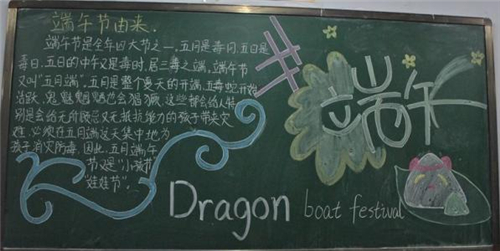 端午节由来.
端午节是全年四大节之一,五月是毒月,五日是
毒日,五日的中午又是毒时,居三毒之端,端午节
又叫“五月端”,五月是整个夏天的开端,五毒蛇开始
活跃,鬼魅魍魉也会猖獗,这些都会给人
别是会给无所顾忌又无抵抗能力的孩子带来灾
难,必须在五月端这天集中地为
孩子消灾防毒,因此,五月端午
节又是“小孩节”
“娃娃节”.
端午
Dragon boat festival